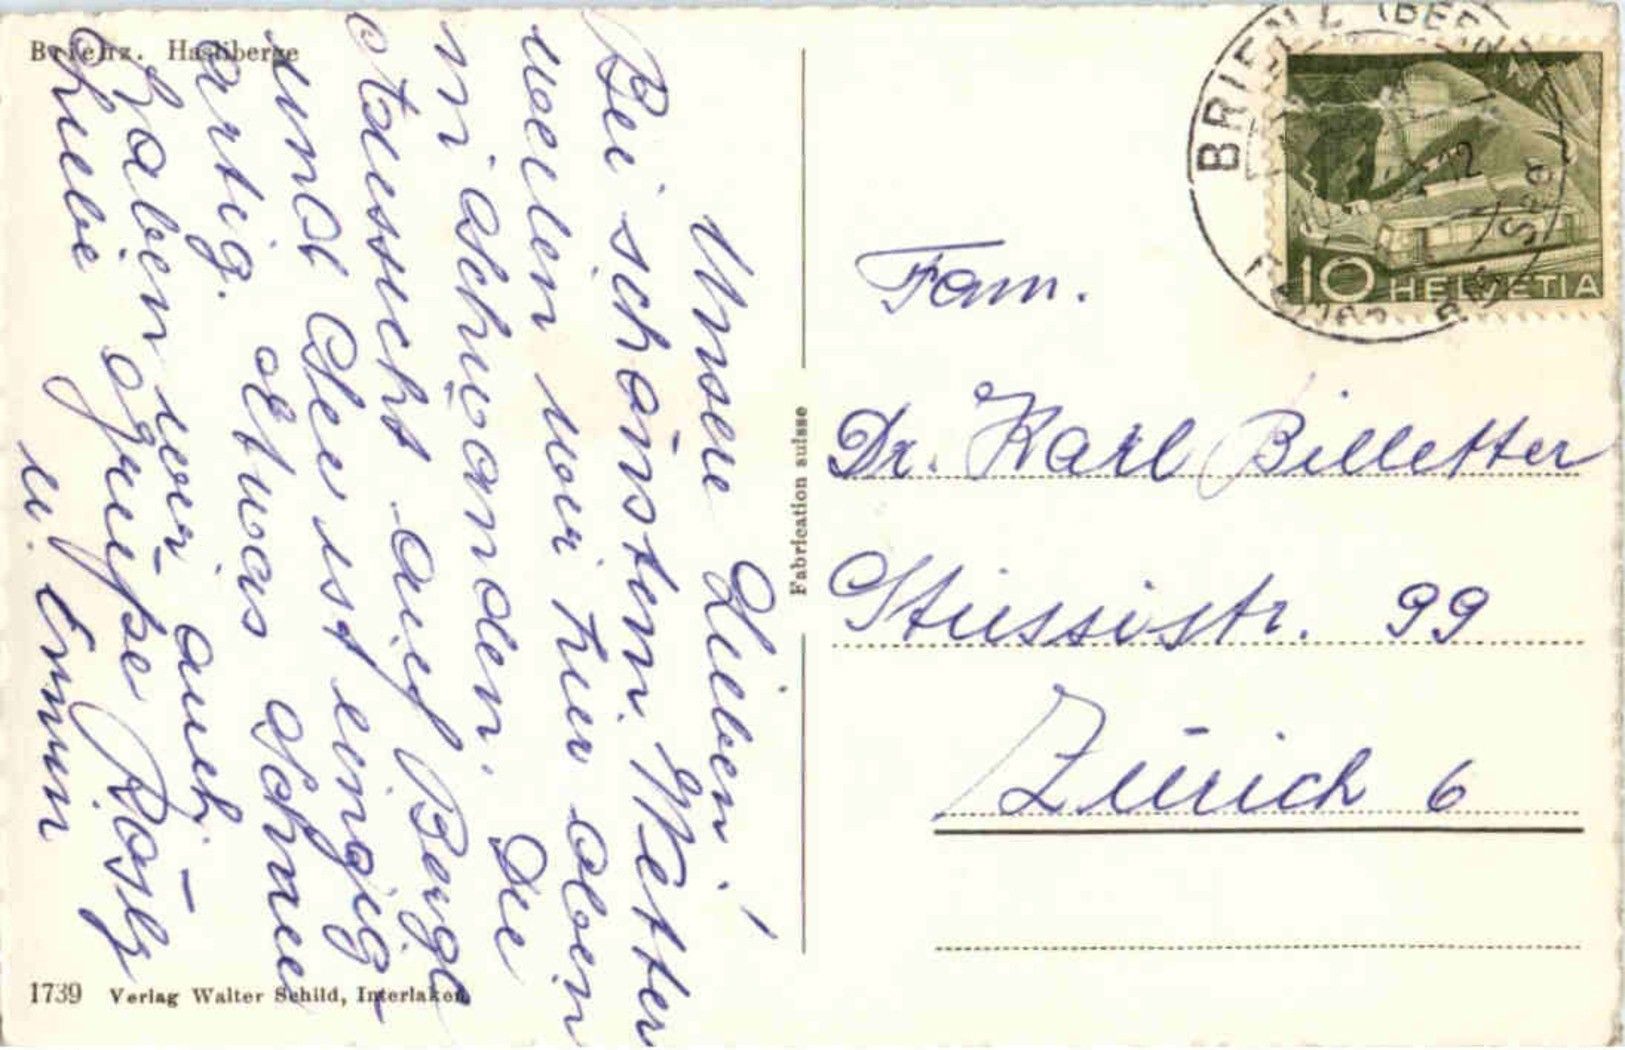 Brienz. Hasliberge
Unsere Lieben!
Bei schönstem Wetter
weilen wir hier oben
in äschwanden. Die
Aussicht auf Bergli
und See ist einzig-
artig. etwas Schnee
haben wir auch.
Liebe Grüsse Rösly
u. Erwin
1739 Verlag Walter Schild, Interlaken
Fabrication suisse
BRIENZ (BERN)
12
10 HELVETIA
Fam.
Dr. Karl Billetter
Stüssistr. 99
Zürich 6